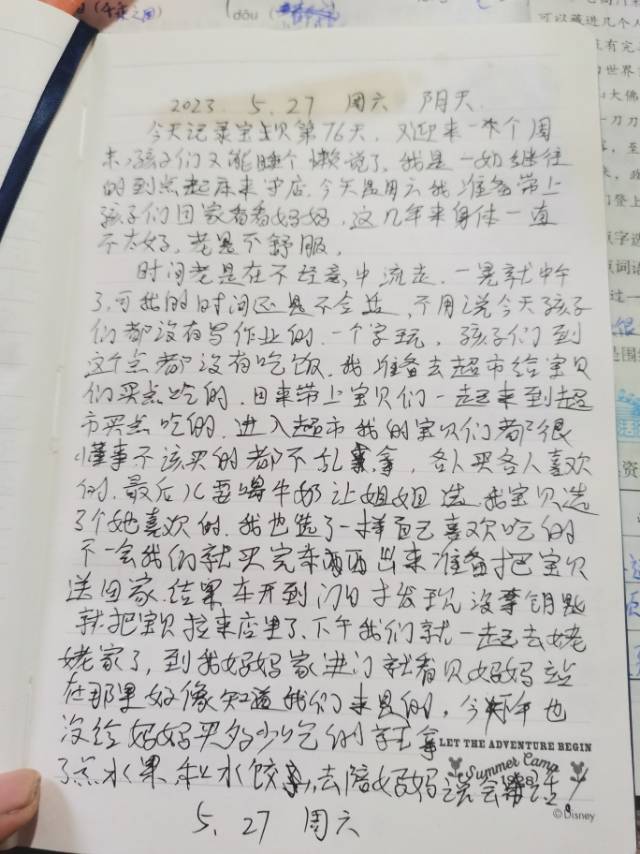 dǒu
可以藏进几个人
2023. 5.27 周六 阴天
今天记录宝贝第76天, 又迎来一个周
末,孩子们又能睡个懒觉了,我是一如继往
的到点起床来字店,今天是周六我准备带上
孩子们回家看看妈妈,这几年来身体一直
不太好,老是不舒服。
时间老是在不经意中流走,一晃就中午
了,可我的时间还是不合适,不用说今天孩子
们都没有写作业的,一个字玩,孩子们到
这个点都没有吃饭,我准备去超市给宝贝
们买点吃的,回来带上宝贝们一起来到超
市买点吃的,进入超市我的宝贝们都很
懂事不该买的都不乱拿,各人买各人喜欢
的,最后儿要喝牛奶让姐姐选,我宝贝选
了个她喜欢的,我也选了一样自己喜欢吃的
不一会我们就买完东西出来准备把宝贝
送回家,结果车开到门口才发现没拿钥匙
就把宝贝拉来店里了,下午我们就一起去姥
姥家了,到我妈妈家进门就看见妈妈站
在那里好像知道我们来是的,今年也
没给妈妈买多少吃的就拿
了点水果和水饺,去陪妈妈说会话。
LET THE ADVENTURE BEGIN
Summer Camp
1928
©Disney
5.27 周六